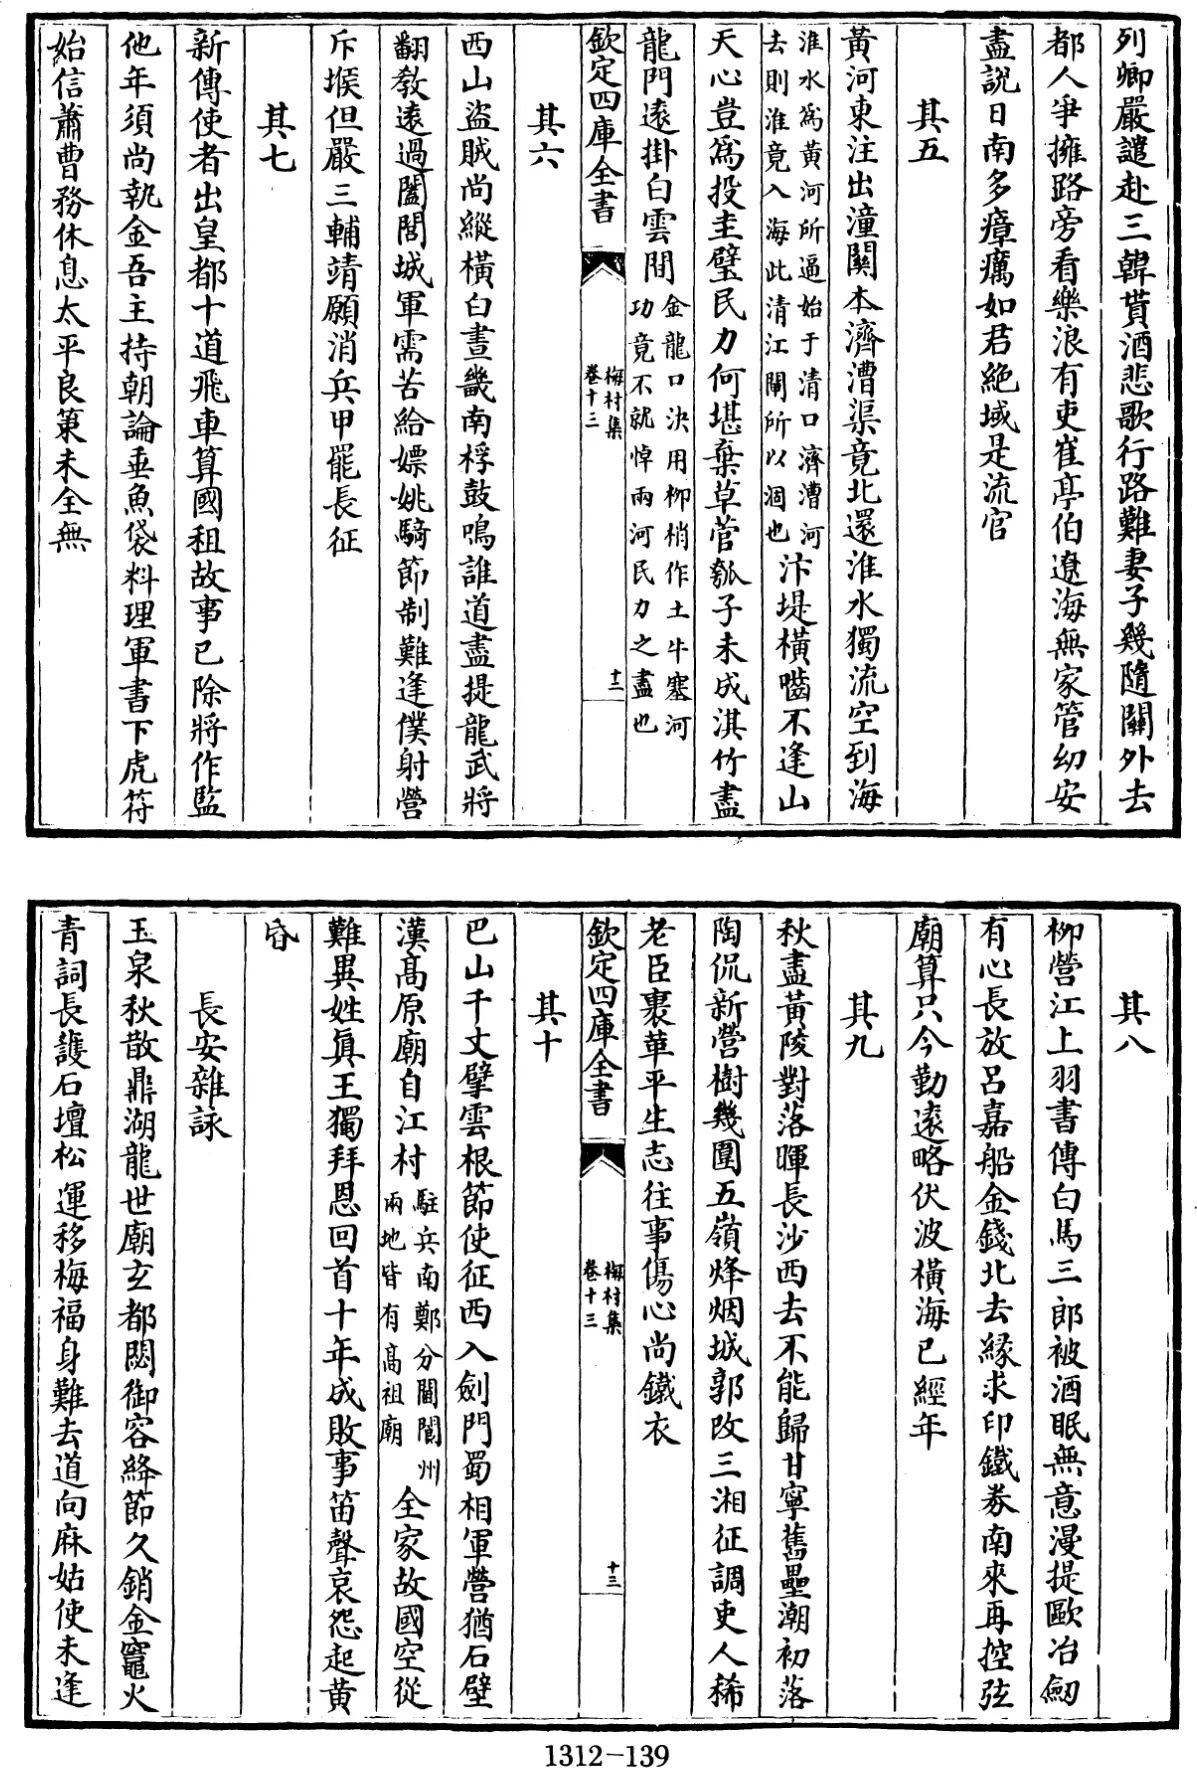 列卿嚴譴赴三韓貰酒悲歌行路難妻子幾隨關外去
都人爭擁路旁看樂浪有吏崔亭伯遼海無家管幼安
盡說日南多瘴癘如君絶域是流官
其五
黃河東注出潼關本濟漕渠竟北還淮水獨流空到海
淮水為黃河所逼始于清口濟漕河
去則淮竟入海此清江閘所以涸也
汴堤橫嚙不逢山
天心豈為投圭璧民力何堪棄草菅瓠子未成淇竹盡
龍門遠掛白雲間
金龍口決用柳梢作土牛塞河
功竟不就悼兩河民力之盡也
欽定四庫全書
梅村集
卷十三
十二
其六
西山盜賊尚縱橫白晝畿南桴鼓鳴誰道盡提龍武將
翻教遠過闔閭城軍需苦給嫖姚騎節制難逢僕射營
斥堠但嚴三輔靖願消兵甲罷長征
其七
新傳使者出皇都十道飛車算國租故事已除將作監
他年須尚執金吾主持朝論垂魚袋料理軍書下虎符
始信蕭曹務休息太平良策未全無
其八
柳營江上羽書傳白馬三郎被酒眠無意漫提歐冶劒
有心長放呂嘉船金錢北去緣求印鐵券南來再控弦
廟算只今勤遠略伏波橫海已經年
其九
秋盡黃陵對落暉長沙西去不能歸甘寧舊壘潮初落
陶侃新營樹幾圍五嶺烽烟城郭改三湘征調吏人稀
老臣裹革平生志往事傷心尚鐵衣
欽定四庫全書
梅村集
卷十三
十三
其十
巴山千丈擘雲根節使征西入劍門蜀相軍營猶石壁
漢高原廟自江村
駐兵南鄭分閫閬州
兩地皆有高祖廟
全家故國空從
難異姓真王獨拜恩回首十年成敗事笛聲哀怨起黃
昏
長安雜詠
玉泉秋散鼎湖龍世廟玄都閟御容絳節久銷金竈火
青詞長護石壇松運移梅福身難去道向麻姑使未逢
1312-139